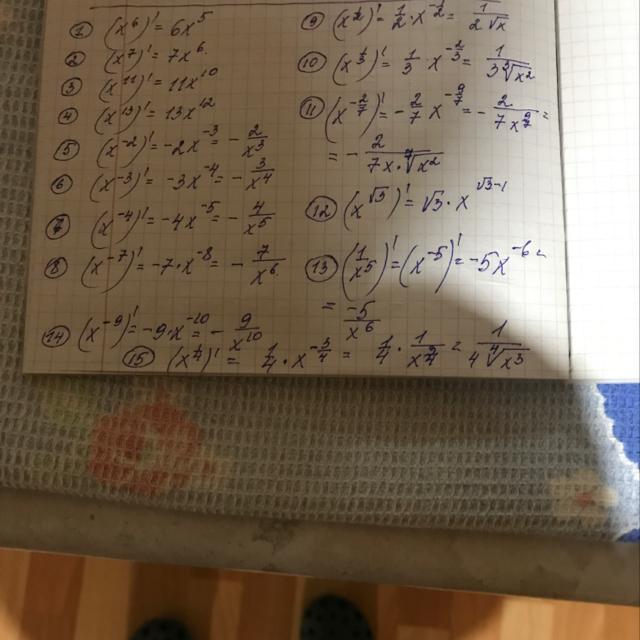 ① (x⁶)' = 6x⁵
② (x⁷)' = 7x⁶
③ (x¹¹)' = 11x¹⁰
④ (x¹³)' = 13x¹²
⑤ (x⁻²)' = -2x⁻³ = -2/x³
⑥ (x⁻³)' = -3x⁻⁴ = -3/x⁴
⑦ (x⁻⁴)' = -4x⁻⁵ = -4/x⁵
⑧ (x⁻⁷)' = -7·x⁻⁸ = -7/x⁶
⑨ (x^½)' = 1/2·x^(-½) = 1/(2√x)
⑩ (x^⅓)' = 1/3 x^(-⅔) = 1/(3∛x²)
⑪ (x^(-2/7))' = -2/7 x^(-9/7) = -2/(7x^(9/7)) =
= -2/(7x·⁷√x²)
⑫ (x^√3)' = √3·x^(√3-1)
⑬ (1/x⁵)' = (x⁻⁵)' = -5x⁻⁶ =
= -5/x⁶
⑭ (x⁻⁹)' = -9·x⁻¹⁰ = -9/x¹⁰
⑮ (x^¼)' = 1/4·x^(-¾) = 1/4·1/x^(¾) = 1/(4∜x³)